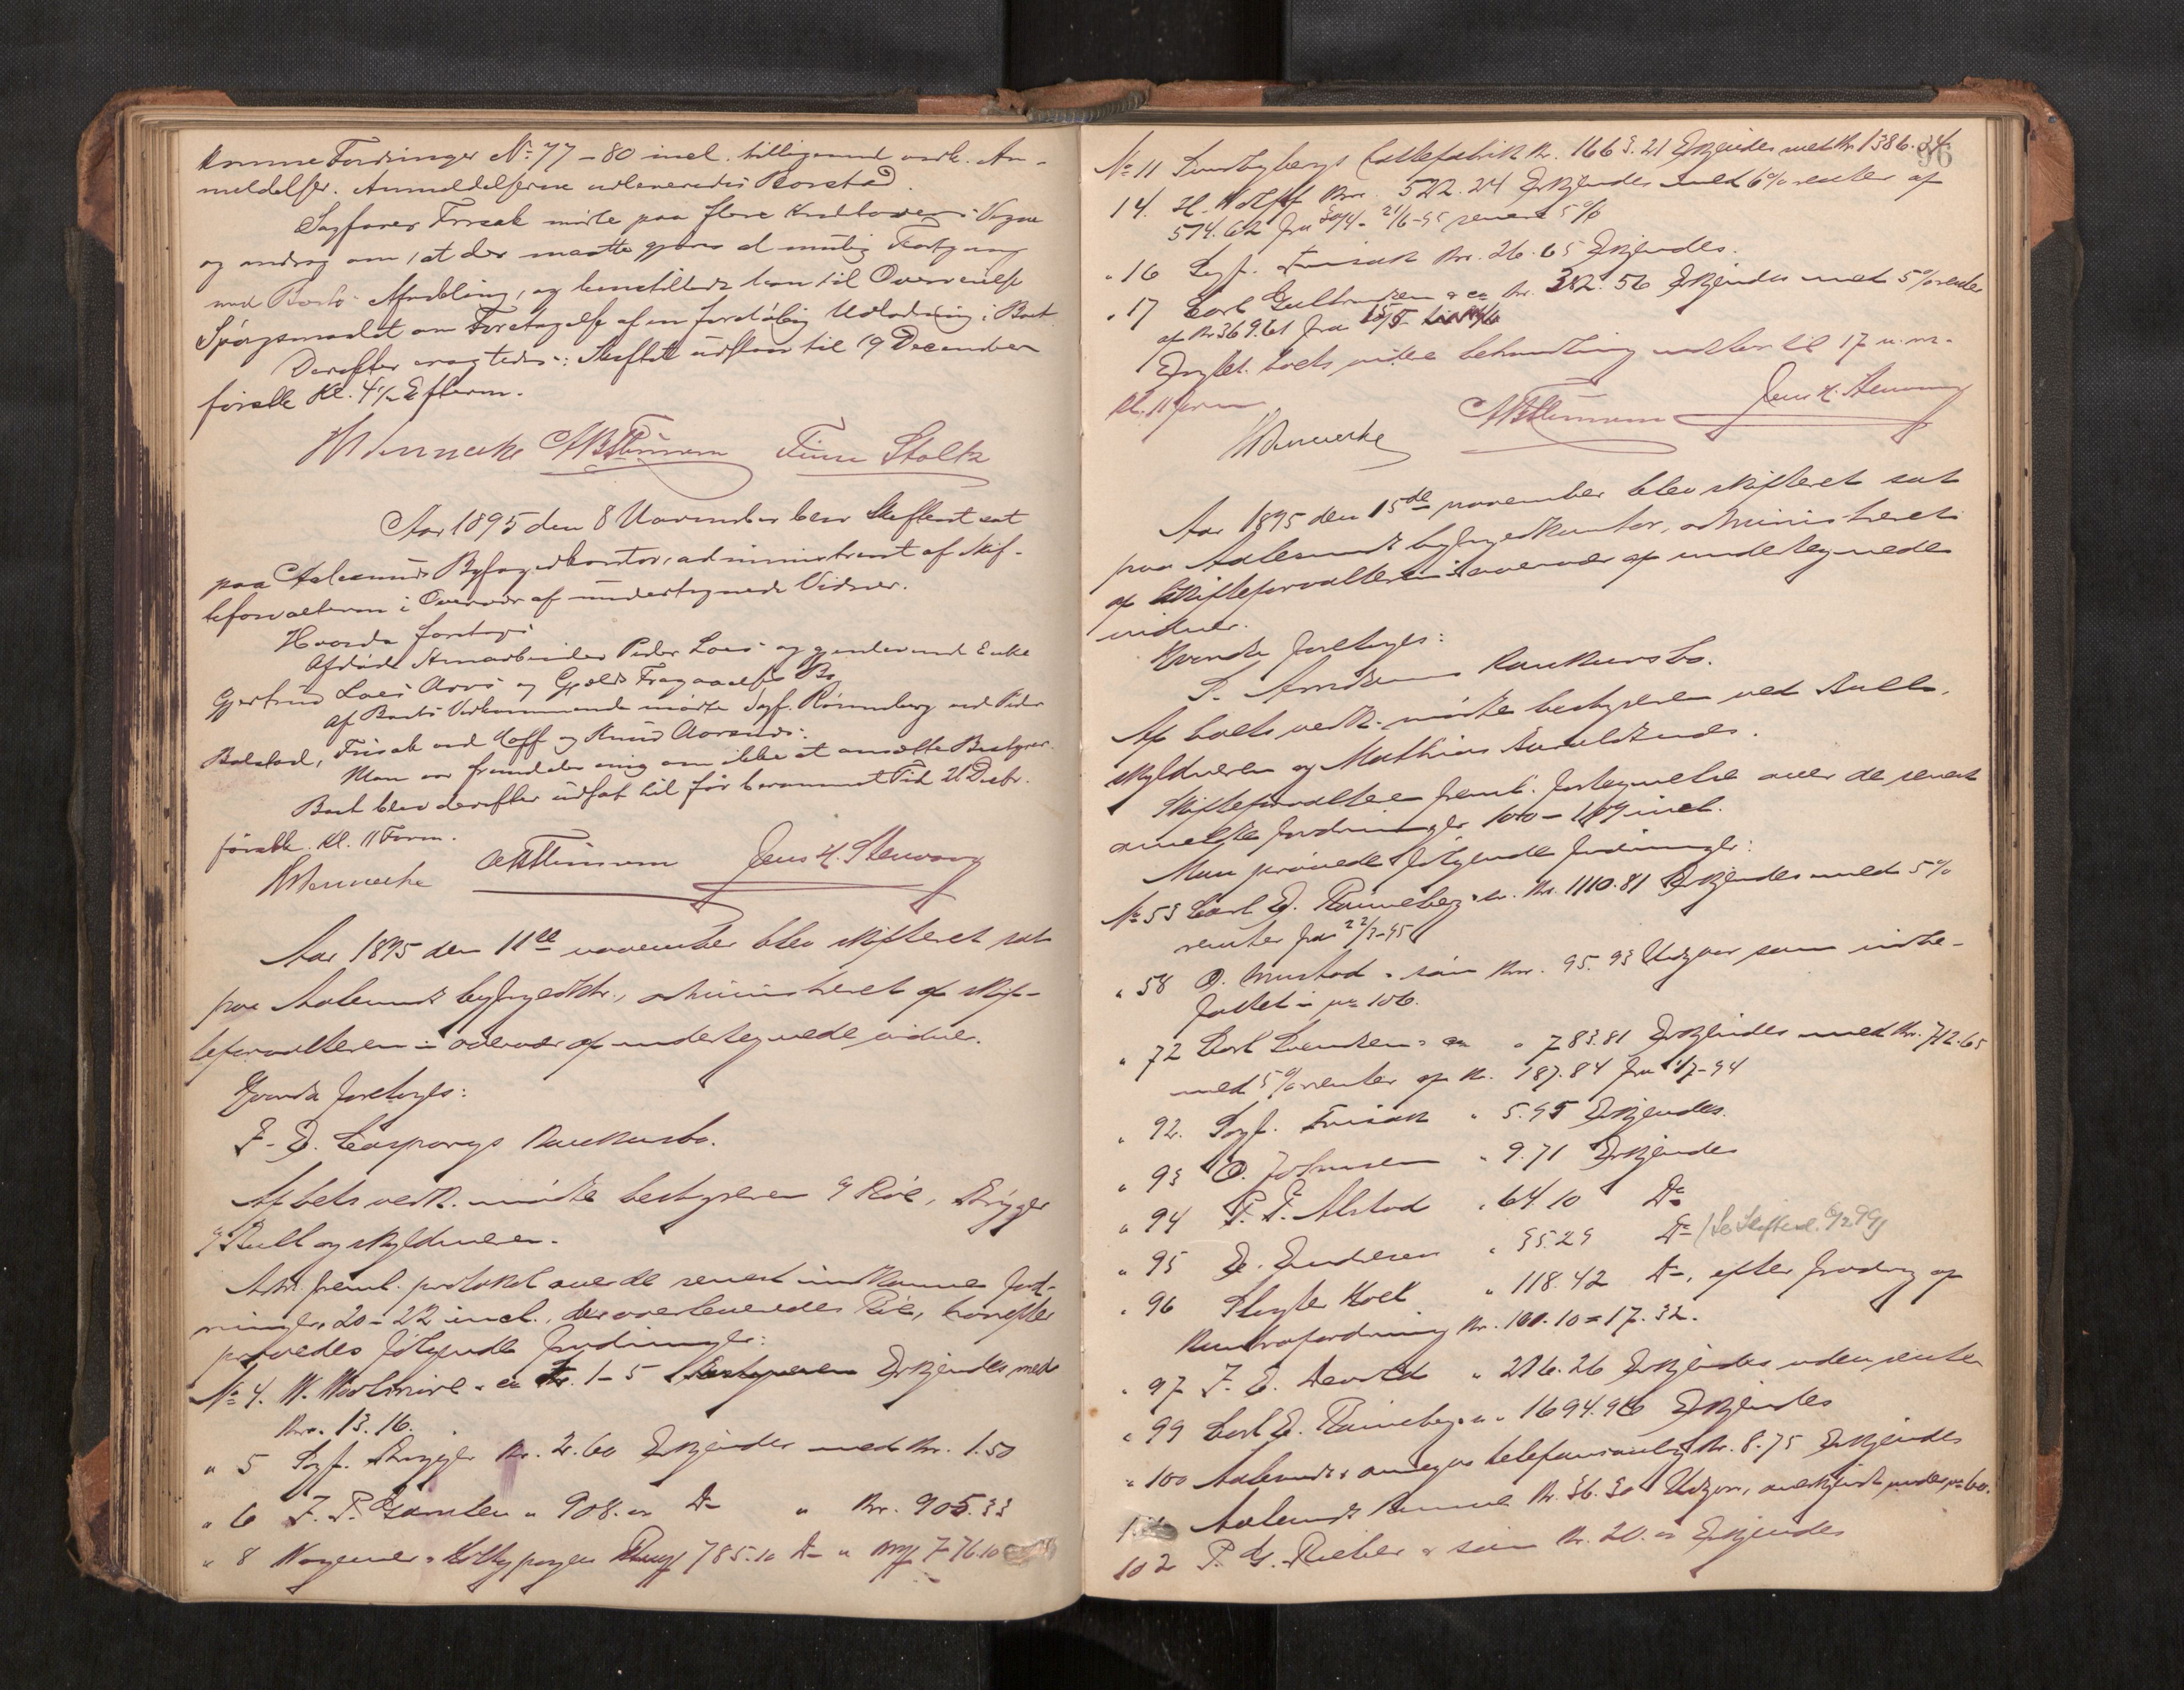 komne Fordringer No 77-80 incl. tilligemed vedk. An-
meldelser. Anmeldelserne udleveredes Borstad.
Sagfører Friisak mødte paa flere Kreditorers Vegne
og androg om, at der maatte gjøres al mulig Fortgang
med Boets Afvikling, og henstilledes han til Overveielse
Spørgsmaalet om Foretagelse af en foreløbig Udlodning i Boet
Derefter eragtedes: Skiftet udstaar til 19 December
førstk Kl. 4 ½ Efterm.
Aar 1895 den 8 November blev Skifteret sat
paa Aalesunds Byfogedkontor, administreret af Skif-
teforvalteren i Overvær af undertegnede Vidner.
Hvorda foretoges
Afdøde Stenarbeider Peder Loes og gjenlevende Enke
Gjertrud Loes Arvs og Gjelds Fragaaelses Bo
Af Boets Vedkommende mødte Sagf. Rønneberg ved Peder
Bolstad, Friisak ved Hoff og Knud Aarsnes.
Man var fremdeles enig om ikke at ansætte Bestyrer.
Boet blev derefter udsat til før berammet Tid 21 Decbr.
førstk. Kl. 11 Form.
Jens H. Stenvaag
Aar 1895 den 11te november blev skifteret sat
paa Aalesunds byfogedktr., administreret af skif-
teforvalteren i overvær af undertegnede vidner.
Hvorda foretoges:
F. D. Casparys Konkursbo.
Af bets vedk. mødte bestyreren, Brygger
Bull og skyldneren.
Adm. freml. protokol over de senest indkomne ford-
ringer, 20-22 incl., der overleveredes, hvorefter
prøvedes følgende fordringer:
No 4. W. & co Kr. 1-5 Erkjendes med
Kr. 13.16.
" 5 Sagf. Brygger Kr. 2.60 Erkjendes med Kr. 1.50
" 6 F. P. " 908. " Do " Kr. 905.33
" 8 785.10 Do " 776.10
96
No 11 fabrik Kr. 1663.21 Erkjendes med Kr 1386.34
14. H. Wolff Kr. 522.24 Erkjendes med 6% renter af
514.62 fra 30/4 - 21/6-95 senere 5%
" 16 Sagf. Friisak Kr. 26.65 Erkjendes.
" 17 Carl Gulbransen & co Kr. 382.56 Erkjendes med 5% renter
af Kr 369.61 fra
Eragtet: boets videre behandling udstaar til 17 n. m.
kl. 11 form
Jens H. Stenvaag
Aar 1895 den 15de november blev skifteret sat
paa Aalesunds byfogedkontor, administreret
af skifteforvalteren i overvær af undertegnede
vidner.
Hvorda foretoges:
Konkursbo.
Af boets vedk. mødte bestyreren ved Bull,
skyldneren og Mathias
Skifteforvalteren freml. fortegnelse over de senest
anmeldte fordringer, 100 - 109 incl.
Man prøvede følgende fordringer:
No 53 Carl E. Rønneberg & s. Kr. 1110.81 Erkjendes med 5%
renter fra 22/3-95
" 58 O. Mustad & søn Kr. 95.93 Udgaar som indbe-
fattet i No 106.
" 72 Carl Svendsen & co " 783.81 Erkjendes med Kr. 712.65
med 5% renter af Kr. 187.84 fra 1/7-94
" 92. Sagf. Friisak " 5.95 Erkjendes.
" 93 O. Johnsen " 9.71 Erkjendes
" 94 P. F. Alstad " 64.10 Do
" 95 E. Endresen " 35.29 Do
" 96 Slagter Hoel " 118.42 Do, efter fradrag af
Kontrafordring Kr. 101.10 = 17.32.
" 97 F. E. Devold " 216.26 Erkjendes uden renter
" 99 Carl E. Rønneberg & s. " 1694.96 Erkjendes
" 100 Aalesunds & omegns telefonanlæg Kr. 8.75 Erkjendes
Aalesunds Kr. 36.30 Udgaar, anerkjendt under No 60.
102 P. G. Rieber & søn Kr. 20. " Erkjendes